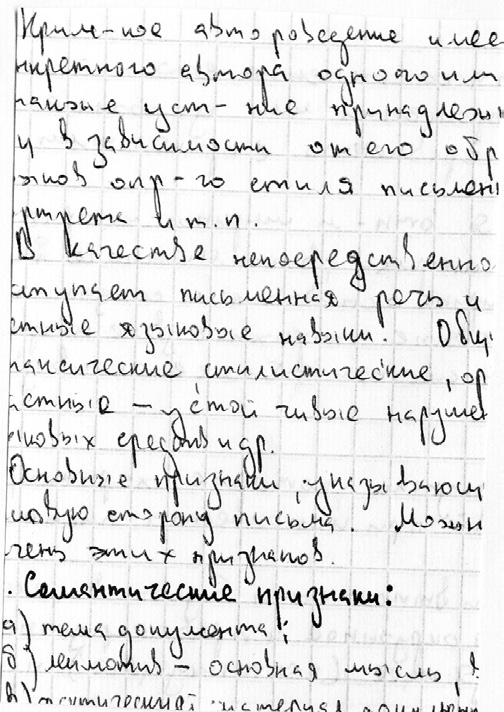 Крим-ное автороведение имее
нкретного автора одного или
также уст-ние принадлежн
и в зависимости от его обр
знов опр-го стиля письмен
ртрета и т.п.
В качестве непосредственно
ступает письменная речь и
стные языковые навыки. Общ
таксические стилистические, ор
астные – устойчивые наруше
ыковых средств и др.
Основные признаки, указывающ
ловую сторону письма. Можн
чень этих признаков.
. Семантические признаки:
а) тема документа;
б) лейтмотив – основная мысль,
в)